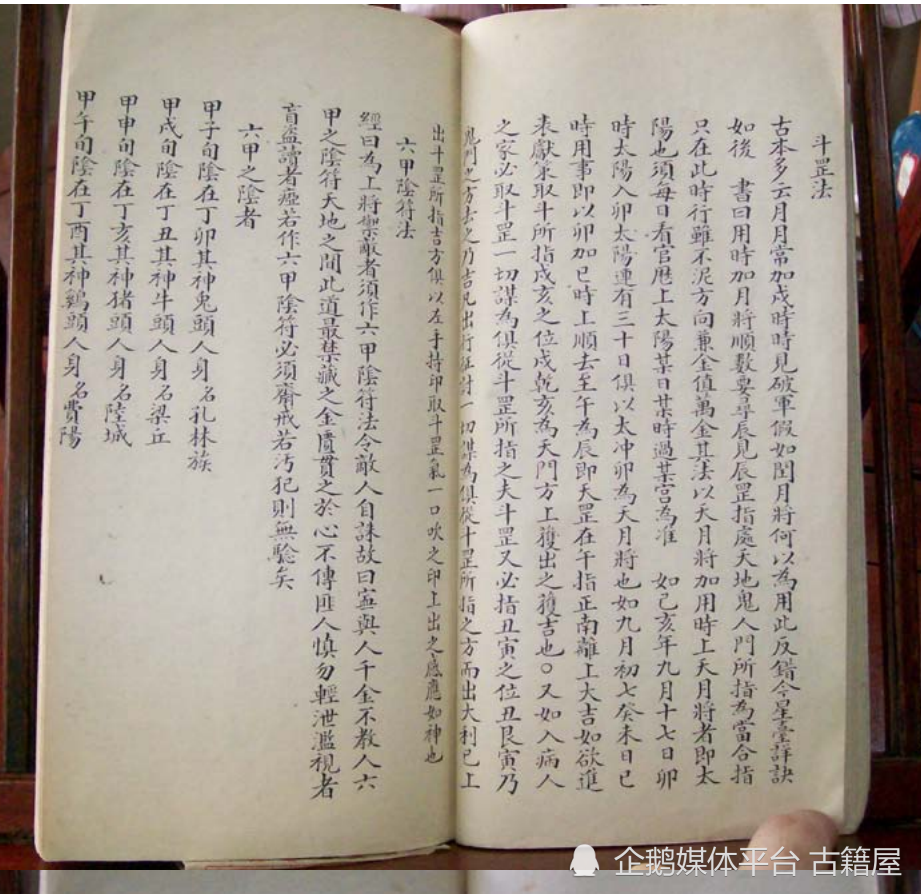 斗罡法
古本多云月月常加戍時時見破軍假如閏月將何以為用此反錯今星臺詳訣
如後 書曰用時加月將順數要尋辰見辰罡指處天地鬼人門所指為當合指
只在此時行雖不泥方向兼全值萬金其法以天月將加用時上天月將者即太
陽也須每日看官歷上太陽某日某時過某宮為准 如己亥年九月十七日卯
時太陽入卯太陽連有三十日俱以太冲卯為天月將也如九月初七癸未日巳
時用事即以卯加巳時上順去至午為辰即天罡在午指正南離上大吉如欲進
表獻策取斗所指戍亥之位戍乾亥為天門方上獲出之獲吉也○又如入病人
之家必取斗罡一切謀為俱從斗罡所指之夫斗罡又必指丑寅之位丑艮寅乃
鬼門之方去之乃吉凡出行征討一切謀為俱從斗罡所指之方而出大利已上
出斗罡所指吉方俱以左手持印取斗罡氣一口吹之印上出之感應如神也
六甲陰符法
經曰為上將禦敵者須作六甲陰符法令敵人自誅故曰寕與人千金不教人六
甲之陰符天地之間此道最禁藏之金匱貫之於心不傳匪人慎勿輕泄濫視者
盲盜讀者瘂若作六甲陰符必須齋戒若汚犯則無驗矣
六甲之陰者
甲子旬陰在丁卯其神兔頭人身名孔林族
甲戍旬陰在丁丑其神牛頭人身名梁丘
甲申旬陰在丁亥其神猪頭人身名陸城
甲午旬陰在丁酉其神鷄頭人身名費陽
企鹅媒体平台 古籍屋